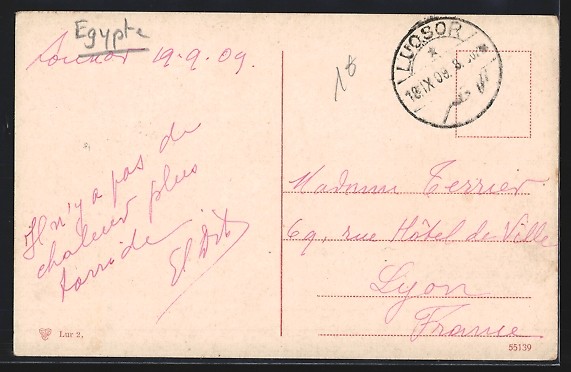 Egypte
Louxor 19-9.09.
18
LUQSOR
18.IX 09. 8
الاقصر
Il n'y a pas de
chaleur plus
torride
Madame Terrier
69, rue Hôtel de Ville
Lyon
France
Lur 2.
55139